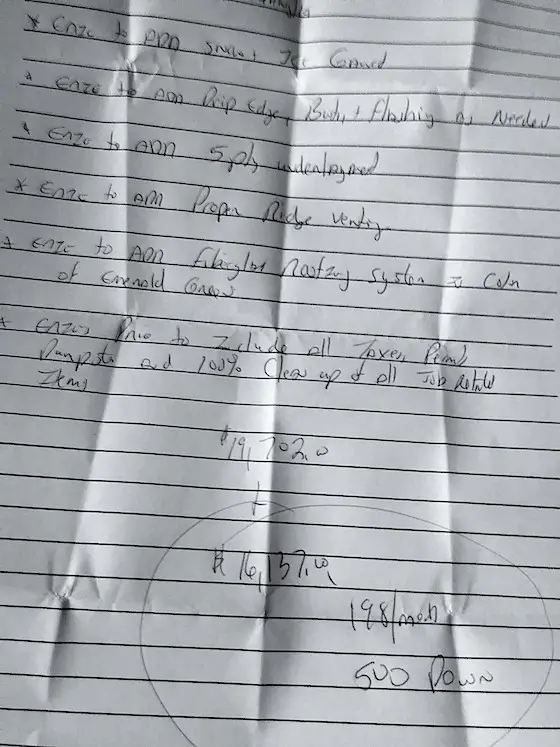 * Enzo to ADD Snow + Ice Guard
* Enzo to ADD Drip Edge, Boots, + Flashing as Needed
* Enzo to ADD 5 ply underlayment
* Enzo to ADD Proper Ridge venting
* Enzo to ADD Fiberglass Roofing System in Color
of Emerald Green
* Enzos Price to Include all Taxes, Permits
Dumpster and 100% Clean up of all Job Related
Items
$19,702.0
$16,137.00
198/month
500 Down